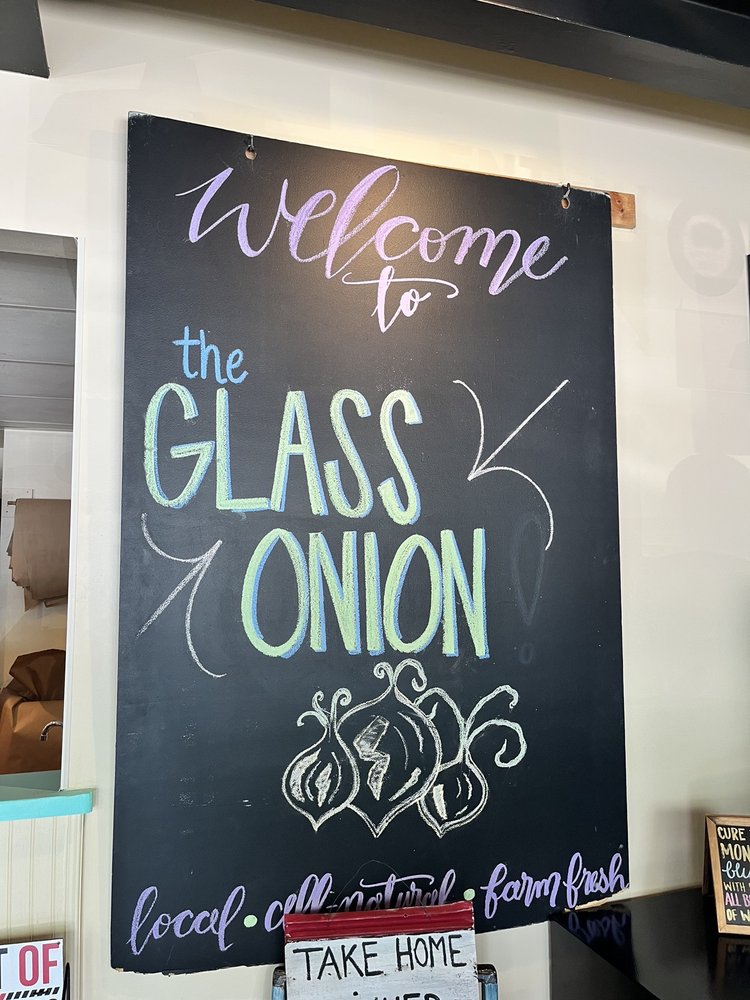 Welcome
to
the
GLASS
ONION
local • all-natural • farm fresh
TAKE HOME
CURE
MON
WITH
ALL B
OF W
T OF